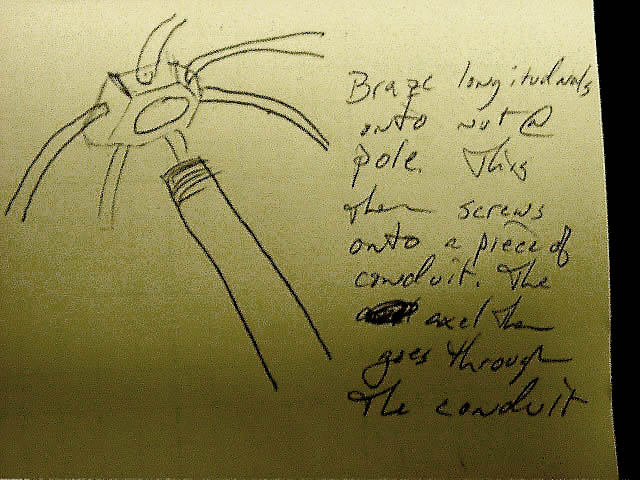 Braze longitudinals
onto nut @
pole. This
then screws
onto a piece of
conduit. The
axel then
goes through
the conduit